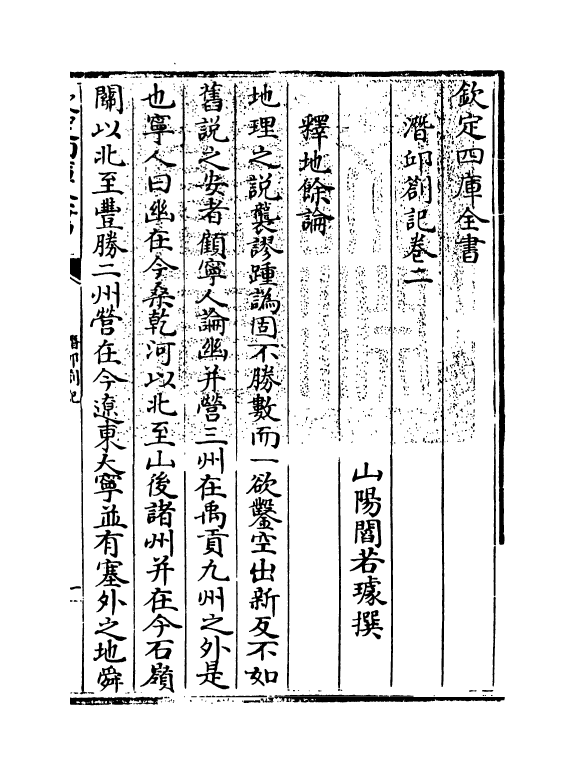 欽定四庫全書
潛邱劄記卷二
山陽閻若璩撰
釋地餘論
地理之說襲謬踵譌固不勝數而一欲鑿空出新反不如
舊說之安者顧寧人論幽并營三州在禹貢九州之外是
也寧人曰幽在今桑乾河以北至山後諸州并在今石嶺
關以北至豐勝二州營在今遼東大寧並有塞外之地舜
潛邱劄記
一